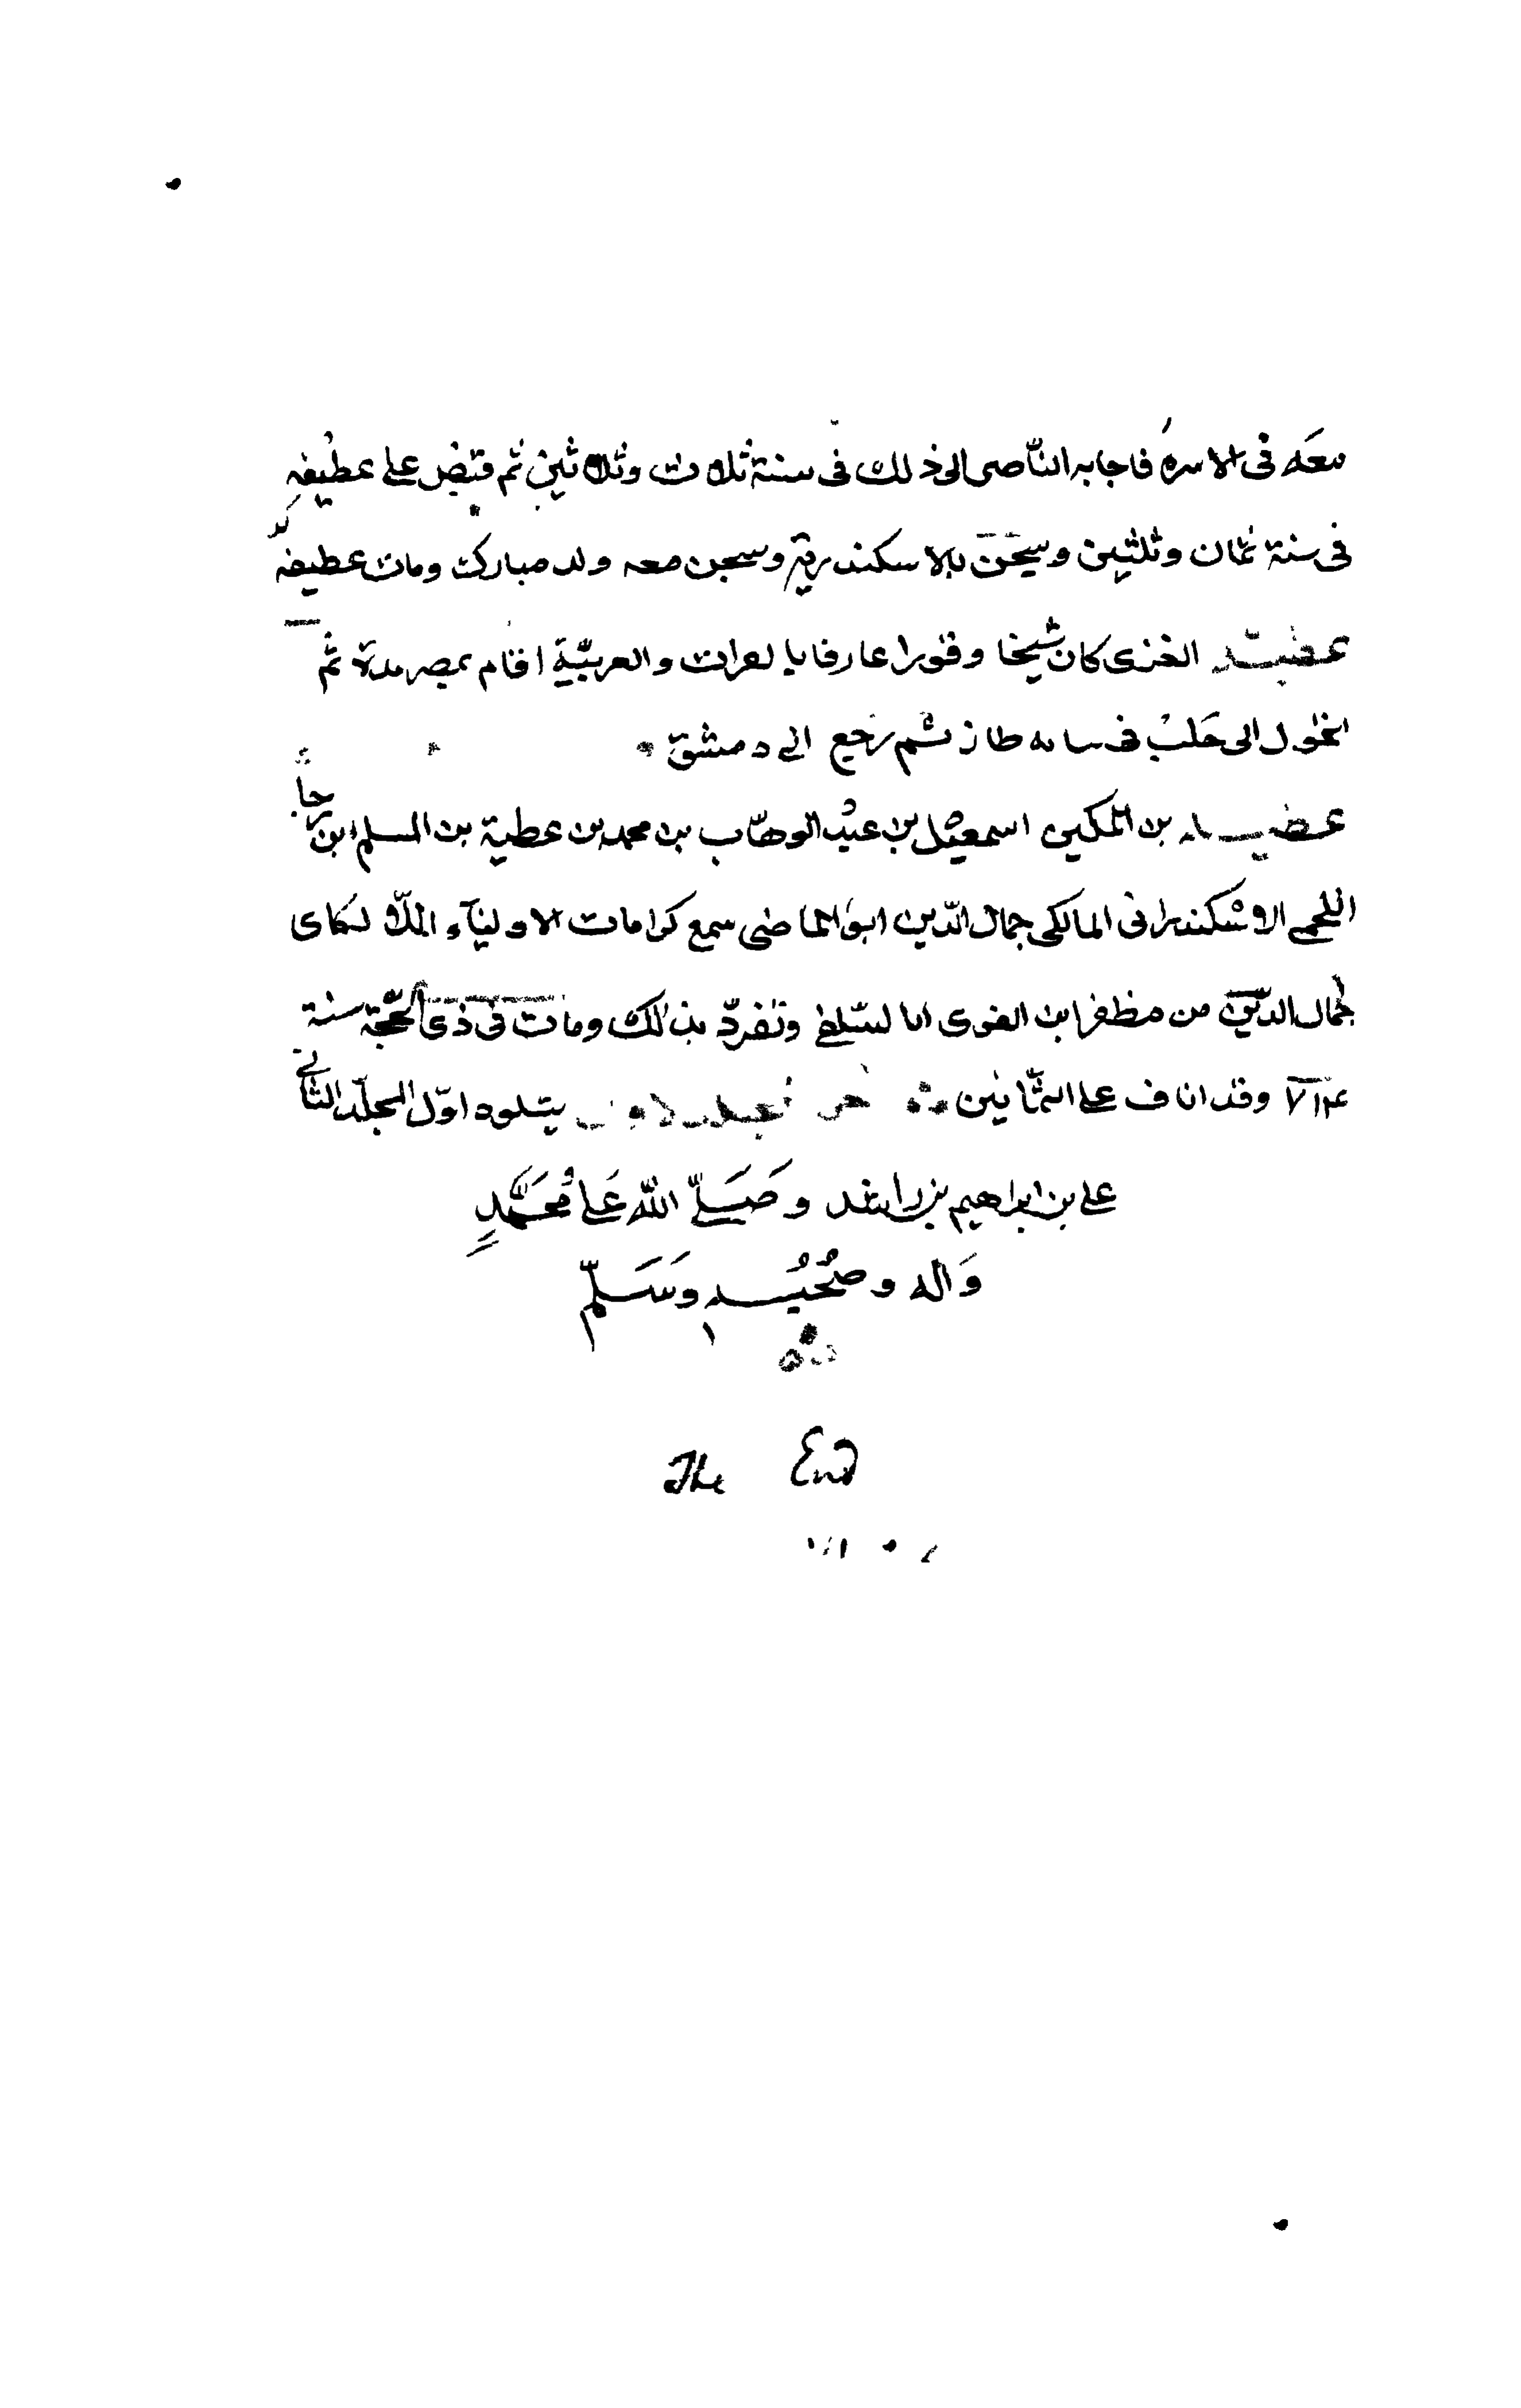 معه فى الامرة فاجابه الناصر الى ذلك فى سنة ثلاث وثلاثين ثم قبض على عطيفه
فى سنة ثمان وثلثين وسجن بالاسكندرية وسجن معه ولد مبارك ومات عطيفه
الغزى كان شيخا وقورا عارفا بالعرات والعربيّة اقام بمصر مدة ثم
تحول الى حلب فى طاز ثم رجع الى دمشق
عطيه بن المكين اسمعيل بن عبد الوهّاب بن محمد بن عطية بن المسلم ابن رجا
اللخمى الاسكندرانى المالكى جمال الدّين ابو الماضى سمع كرامات الاوليآء اللالكاى
جمال الدّين من مظفر ابن الفوى انا لسّلفى وتفردّ بذلك ومات فى ذى الحجّة سنة
٧١٤ وقد اناف على الثمّانين يتلوه اوّل المجلّد الثانى
على بن ابراهيم وَصَلّى اللّه عَلى مُحَمَّدٍ
وَاله وصحبه وَسَلّم
The End